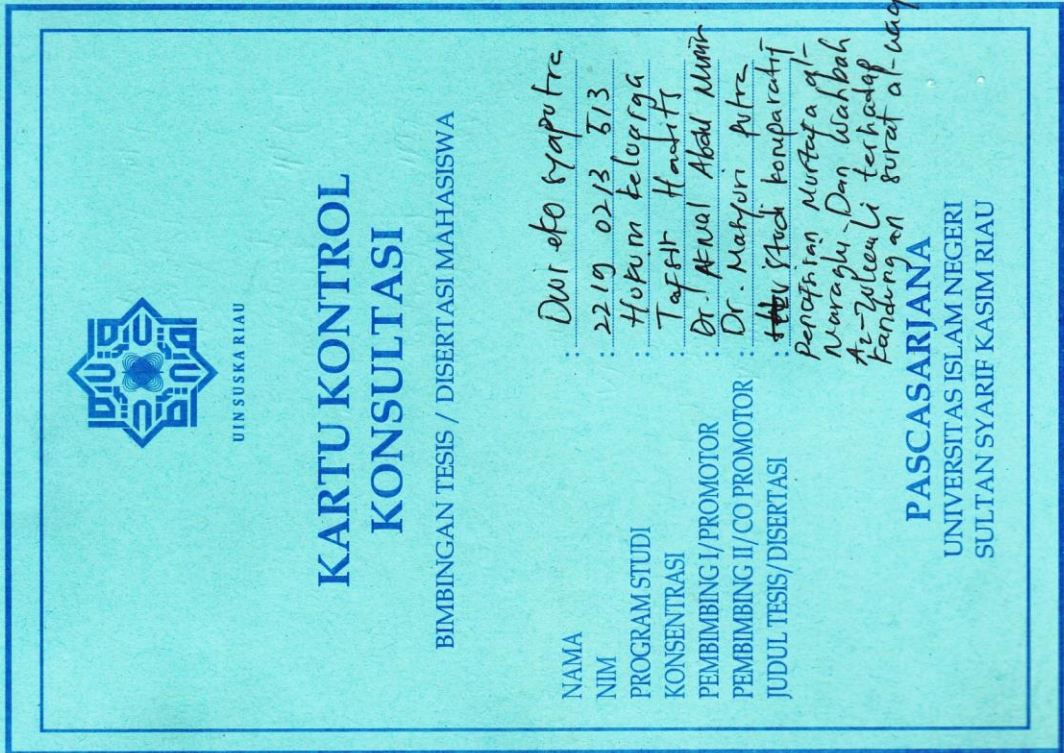 UIN SUSKA RIAU
KARTU KONTROL
KONSULTASI
BIMBINGAN TESIS / DISERTASI MAHASISWA
NAMA : Dwi eko syaputra
NIM : 2219 0213 513
PROGRAM STUDI : Hukum keluarga
KONSENTRASI : Tafsir Hadits
PEMBIMBING I/PROMOTOR : Dr. Akmal Abdul Munir
PEMBIMBING II/CO PROMOTOR : Dr. Masyuri putra
JUDUL TESIS/DISERTASI : Studi komparatif
Penafsiran Mustafa al-
Maraghi Dan Wahbah
Az-Zuhaili terhadap
kandungan surat al-
PASCASARJANA
UNIVERSITAS ISLAM NEGERI
SULTAN SYARIF KASIM RIAU